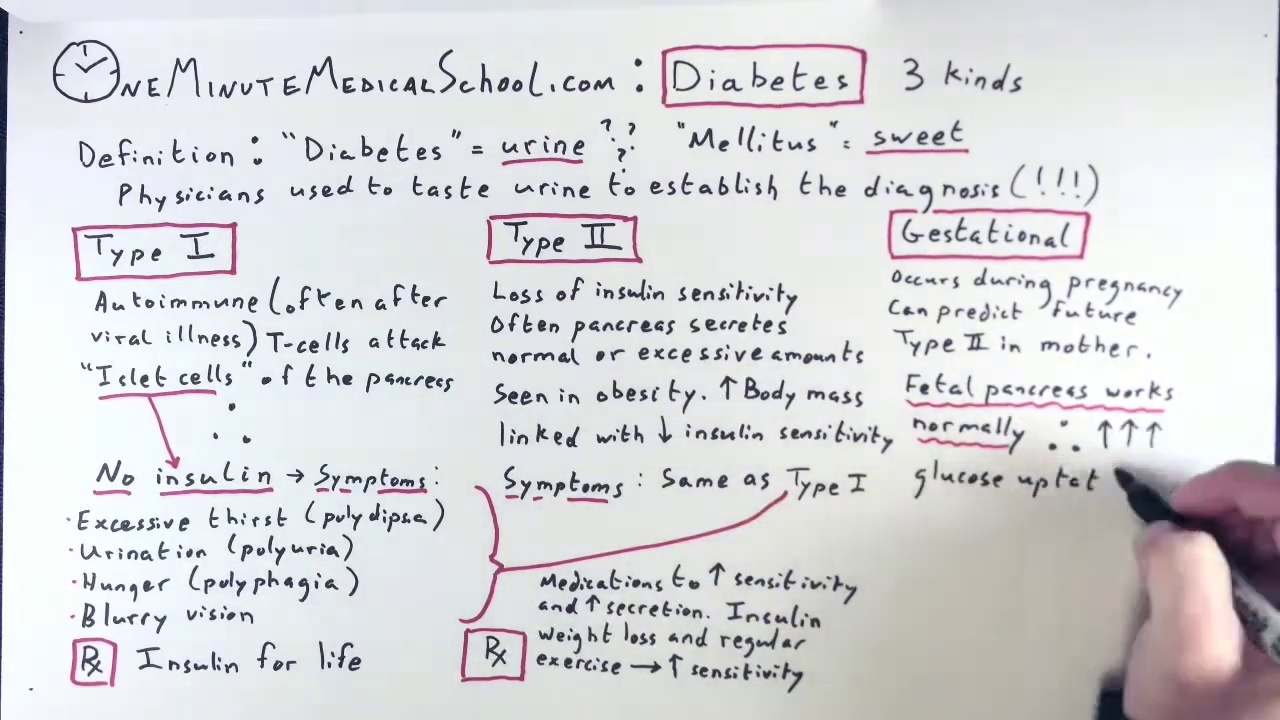 ONEMINUTEMEDICALSCHOOL.COM : Diabetes 3 kinds
Definition : "Diabetes" = urine ? ? ? "Mellitus" = sweet
Physicians used to taste urine to establish the diagnosis (!!!)
Type I
Autoimmune (often after
viral illness) T-cells attack
"Islet cells" of the pancreas
∴
No insulin → Symptoms :
· Excessive thirst (polydipsia)
· Urination (polyuria)
· Hunger (polyphagia)
· Blurry vision
Rx Insulin for life
Type II
Loss of insulin sensitivity
Often pancreas secretes
normal or excessive amounts
Seen in obesity. ↑ Body mass
linked with ↓ insulin sensitivity
Symptoms : Same as Type I
Medications to ↑ sensitivity
and ↑ secretion. Insulin
weight loss and regular
exercise → ↑ sensitivity
Rx
Gestational
Occurs during pregnancy
Can predict future
Type II in mother.
Fetal pancreas works
normally ∴ ↑↑↑
glucose uptat